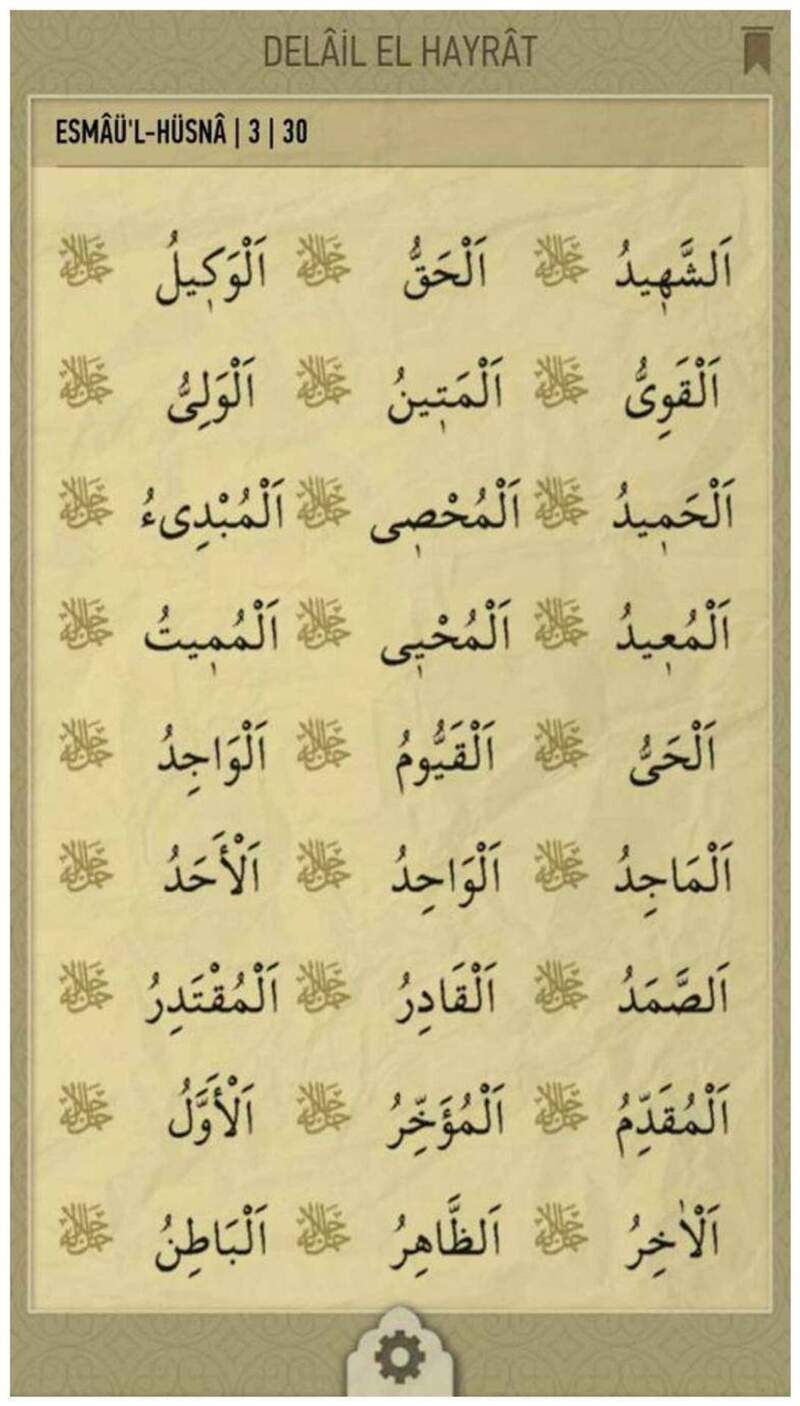 DELÂİL EL HAYRÂT
ESMÂÜ'L-HÜSNÂ | 3 | 30
اَلشَّهٖيدُ جَلَّ جَلَالُهُ اَلْحَقُّ جَلَّ جَلَالُهُ اَلْوَكٖيلُ جَلَّ جَلَالُهُ
اَلْقَوِىُّ جَلَّ جَلَالُهُ اَلْمَتٖينُ جَلَّ جَلَالُهُ اَلْوَلِىُّ جَلَّ جَلَالُهُ
اَلْحَمٖيدُ جَلَّ جَلَالُهُ اَلْمُحْصٖى جَلَّ جَلَالُهُ اَلْمُبْدِىءُ جَلَّ جَلَالُهُ
اَلْمُعٖيدُ جَلَّ جَلَالُهُ اَلْمُحْيٖى جَلَّ جَلَالُهُ اَلْمُمٖيتُ جَلَّ جَلَالُهُ
اَلْحَىُّ جَلَّ جَلَالُهُ اَلْقَيُّومُ جَلَّ جَلَالُهُ اَلْوَاجِدُ جَلَّ جَلَالُهُ
اَلْمَاجِدُ جَلَّ جَلَالُهُ اَلْوَاحِدُ جَلَّ جَلَالُهُ اَلْأَحَدُ جَلَّ جَلَالُهُ
اَلصَّمَدُ جَلَّ جَلَالُهُ اَلْقَادِرُ جَلَّ جَلَالُهُ اَلْمُقْتَدِرُ جَلَّ جَلَالُهُ
اَلْمُقَدِّمُ جَلَّ جَلَالُهُ اَلْمُؤَخِّرُ جَلَّ جَلَالُهُ اَلْأَوَّلُ جَلَّ جَلَالُهُ
اَلْاٰخِرُ جَلَّ جَلَالُهُ اَلظَّاهِرُ جَلَّ جَلَالُهُ اَلْبَاطِنُ جَلَّ جَلَالُهُ